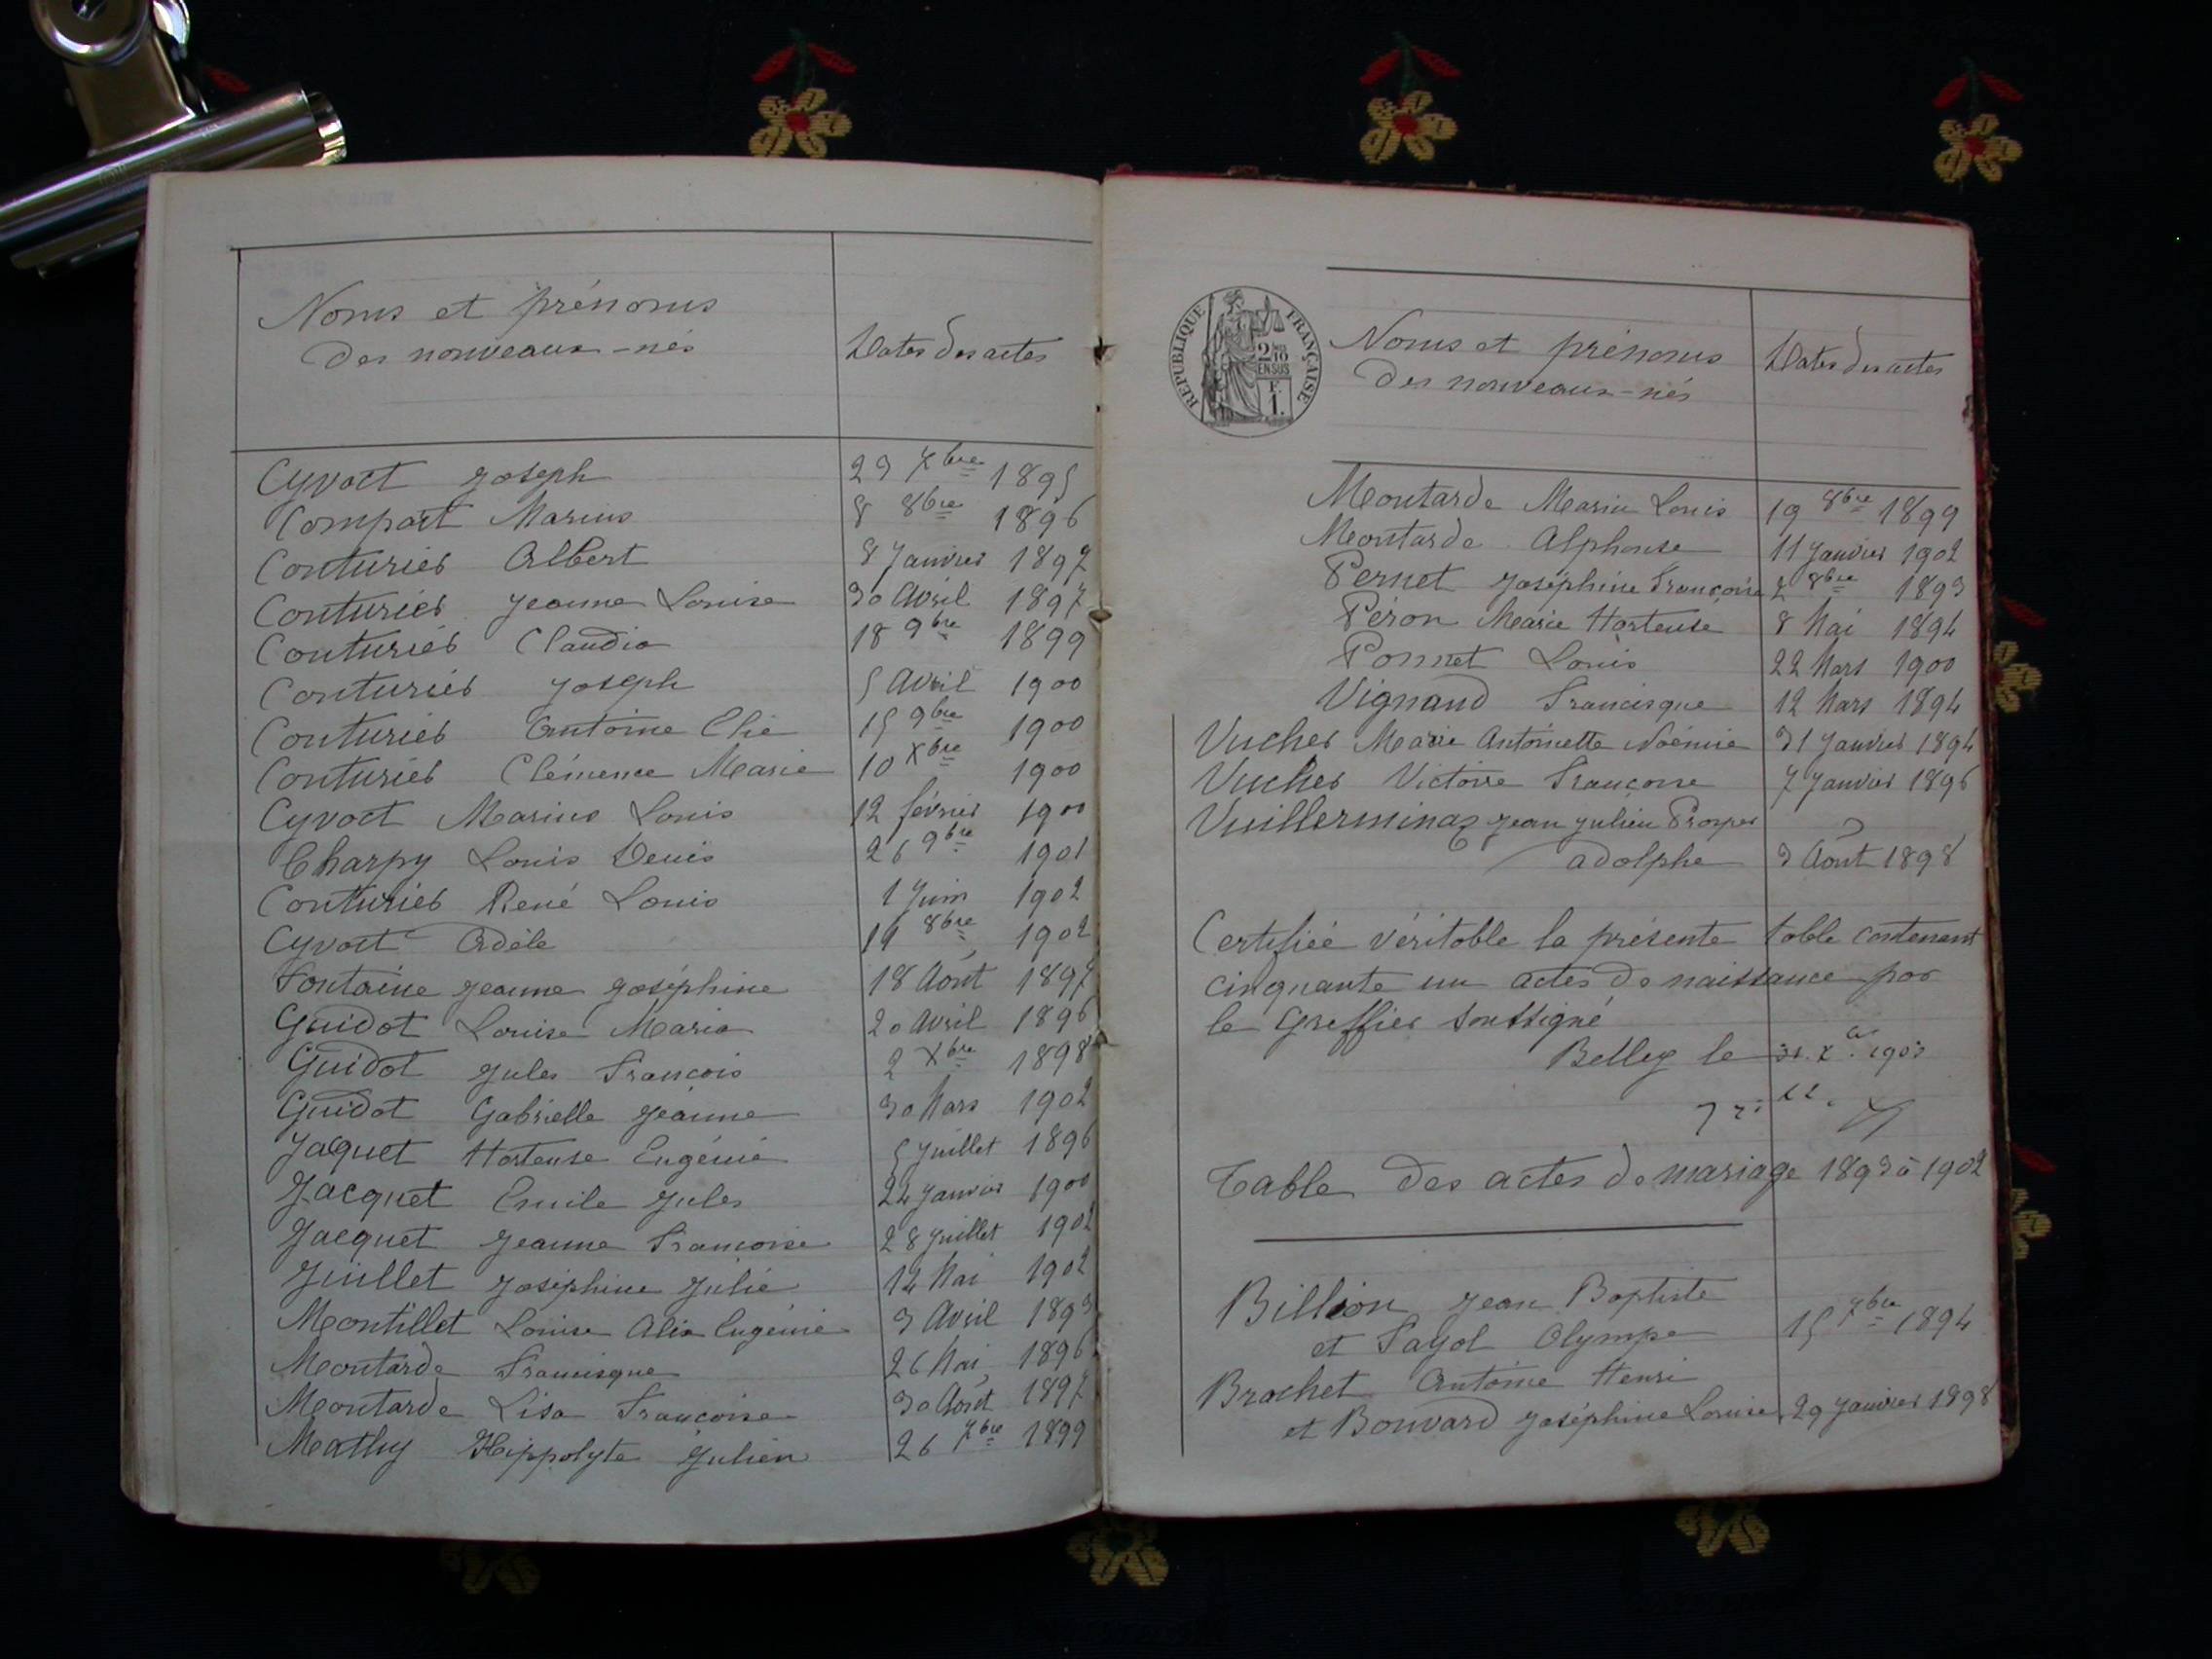 Noms et prénoms
des nouveaux-nés
Dates des actes
Cyvoct Joseph 23 Xbre 1895
Compart Marius 8 8bre 1896
Couturier Albert 8 Janvier 1897
Couturier Jeanne Louise 30 Avril 1897
Couturier Claudia 18 9bre 1899
Couturier Joseph 5 Avril 1900
Couturier Antoine Elie 15 9bre 1900
Couturier Clémence Marie 10 Xbre 1900
Cyvoct Marius Louis 12 février 1900
Charpy Louis Denis 26 9bre 1901
Couturier René Louis 1 Juin 1902
Cyvoct Adèle 8bre 1902
Fontaine Jeanne Joséphine 18 Août 1897
Guidot Louise Maria 20 Avril 1896
Guidot Jules François 2 Xbre 1898
Guidot Gabrielle Jeanne 30 Mars 1902
Jacquet Hortense Eugénie 5 Juillet 1896
Jacquet Emile Jules 24 Janvier 1900
Jacquet Jeanne Françoise 28 Juillet 1902
Juillet Joséphine Julie 14 Mai 1902
Montillet Louise Alix Eugénie 3 Avril 1893
Moutarde Francisque 26 Mai 1896
Moutarde Lisa Françoise 30 Août 1897
Mathy Hippolyte Julien 26 7bre 1899
REPUBLIQUE FRANÇAISE
2/10
EN SUS
F.
1.
Noms et prénoms
des nouveaux-nés
Dates des actes
Moutarde Marie Louis 19 8bre 1899
Moutarde Alphonse 11 Janvier 1902
Pernet Joséphine Françoise 2 8bre 1893
Péron Marie Hortense 8 Mai 1894
Ponnet Louis 22 Mars 1900
Vignaud Francisque 12 Mars 1894
Vucher Marie Antoinette Noémie 31 Janvier 1894
Vucher Victoire Françoise 7 Janvier 1896
Vuillerminaz Jean Julien Prosper
Adolphe 3 Août 1898
Certifiée véritable la présente table contenant
cinquante un actes de naissance par
le Greffier soussigné
Belley le
Table des actes de mariage 1893 à 1902
Billion Jean Baptiste
et Fayol Olympe 15 7bre 1894
Brochet Antoine Henri
et Bouvard Joséphine Louise 29 Janvier 1898